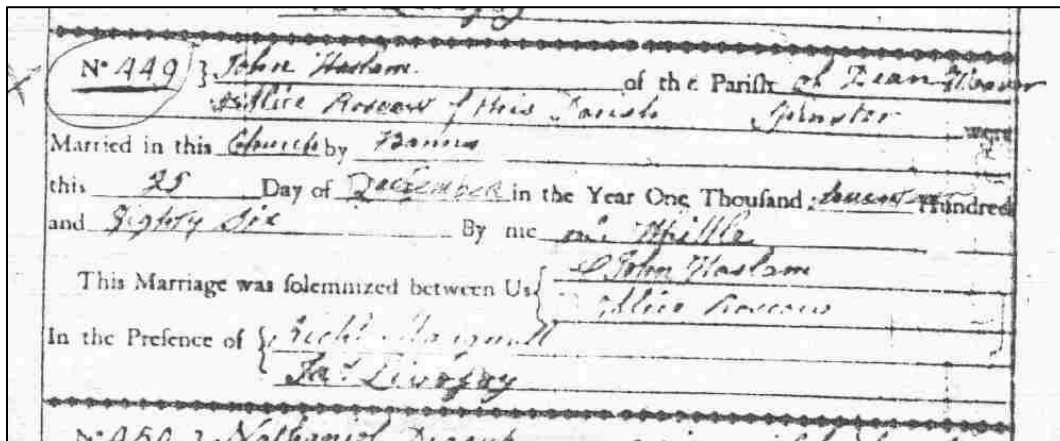 No 449 } John Haslam of the Parish of Dean Weaver
& Alice Roscow of this Parish Spinster were
Married in this Church by Banns
this 25 Day of December in the Year One Thousand seven Hundred
and Eighty Six By me Whittle
This Marriage was solemnized between Us { John Haslam
Alice Roscow
In the Presence of { Richd
Jas Livesay
No 450 } Nathaniel